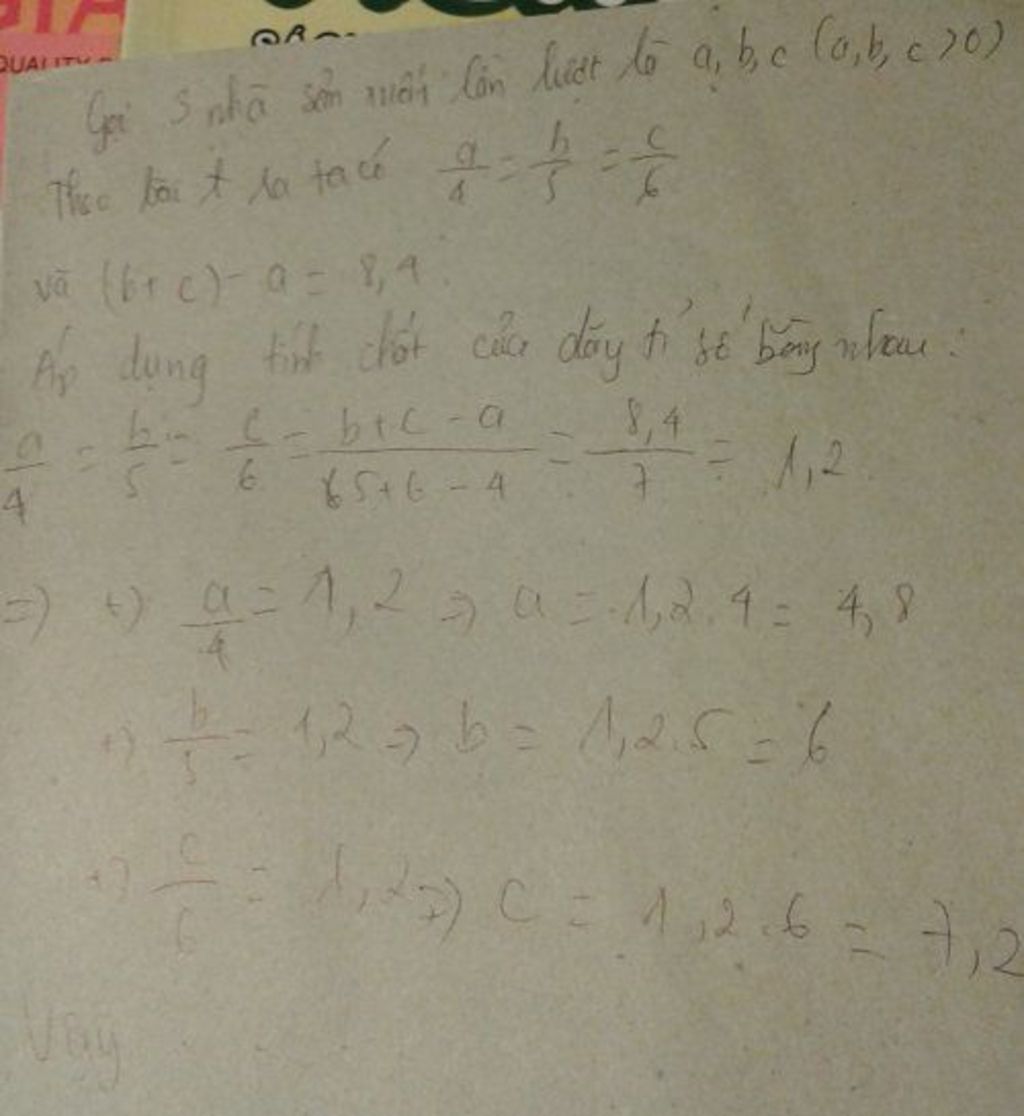 QUALITY
Gọi 3 nhà sản xuất lần lượt là a, b, c (a, b, c > 0)
Theo bài ra ta có a/4 = b/5 = c/6
và (b + c) - a = 8,4.
Áp dụng tính chất của dãy tỉ số bằng nhau:
a/4 = b/5 = c/6 = (b + c - a)/(5 + 6 - 4) = 8,4/7 = 1,2.
=> +) a/4 = 1,2 => a = 1,2 . 4 = 4,8
+) b/5 = 1,2 => b = 1,2 . 5 = 6
+) c/6 = 1,2 => c = 1,2 . 6 = 7,2
Vậy